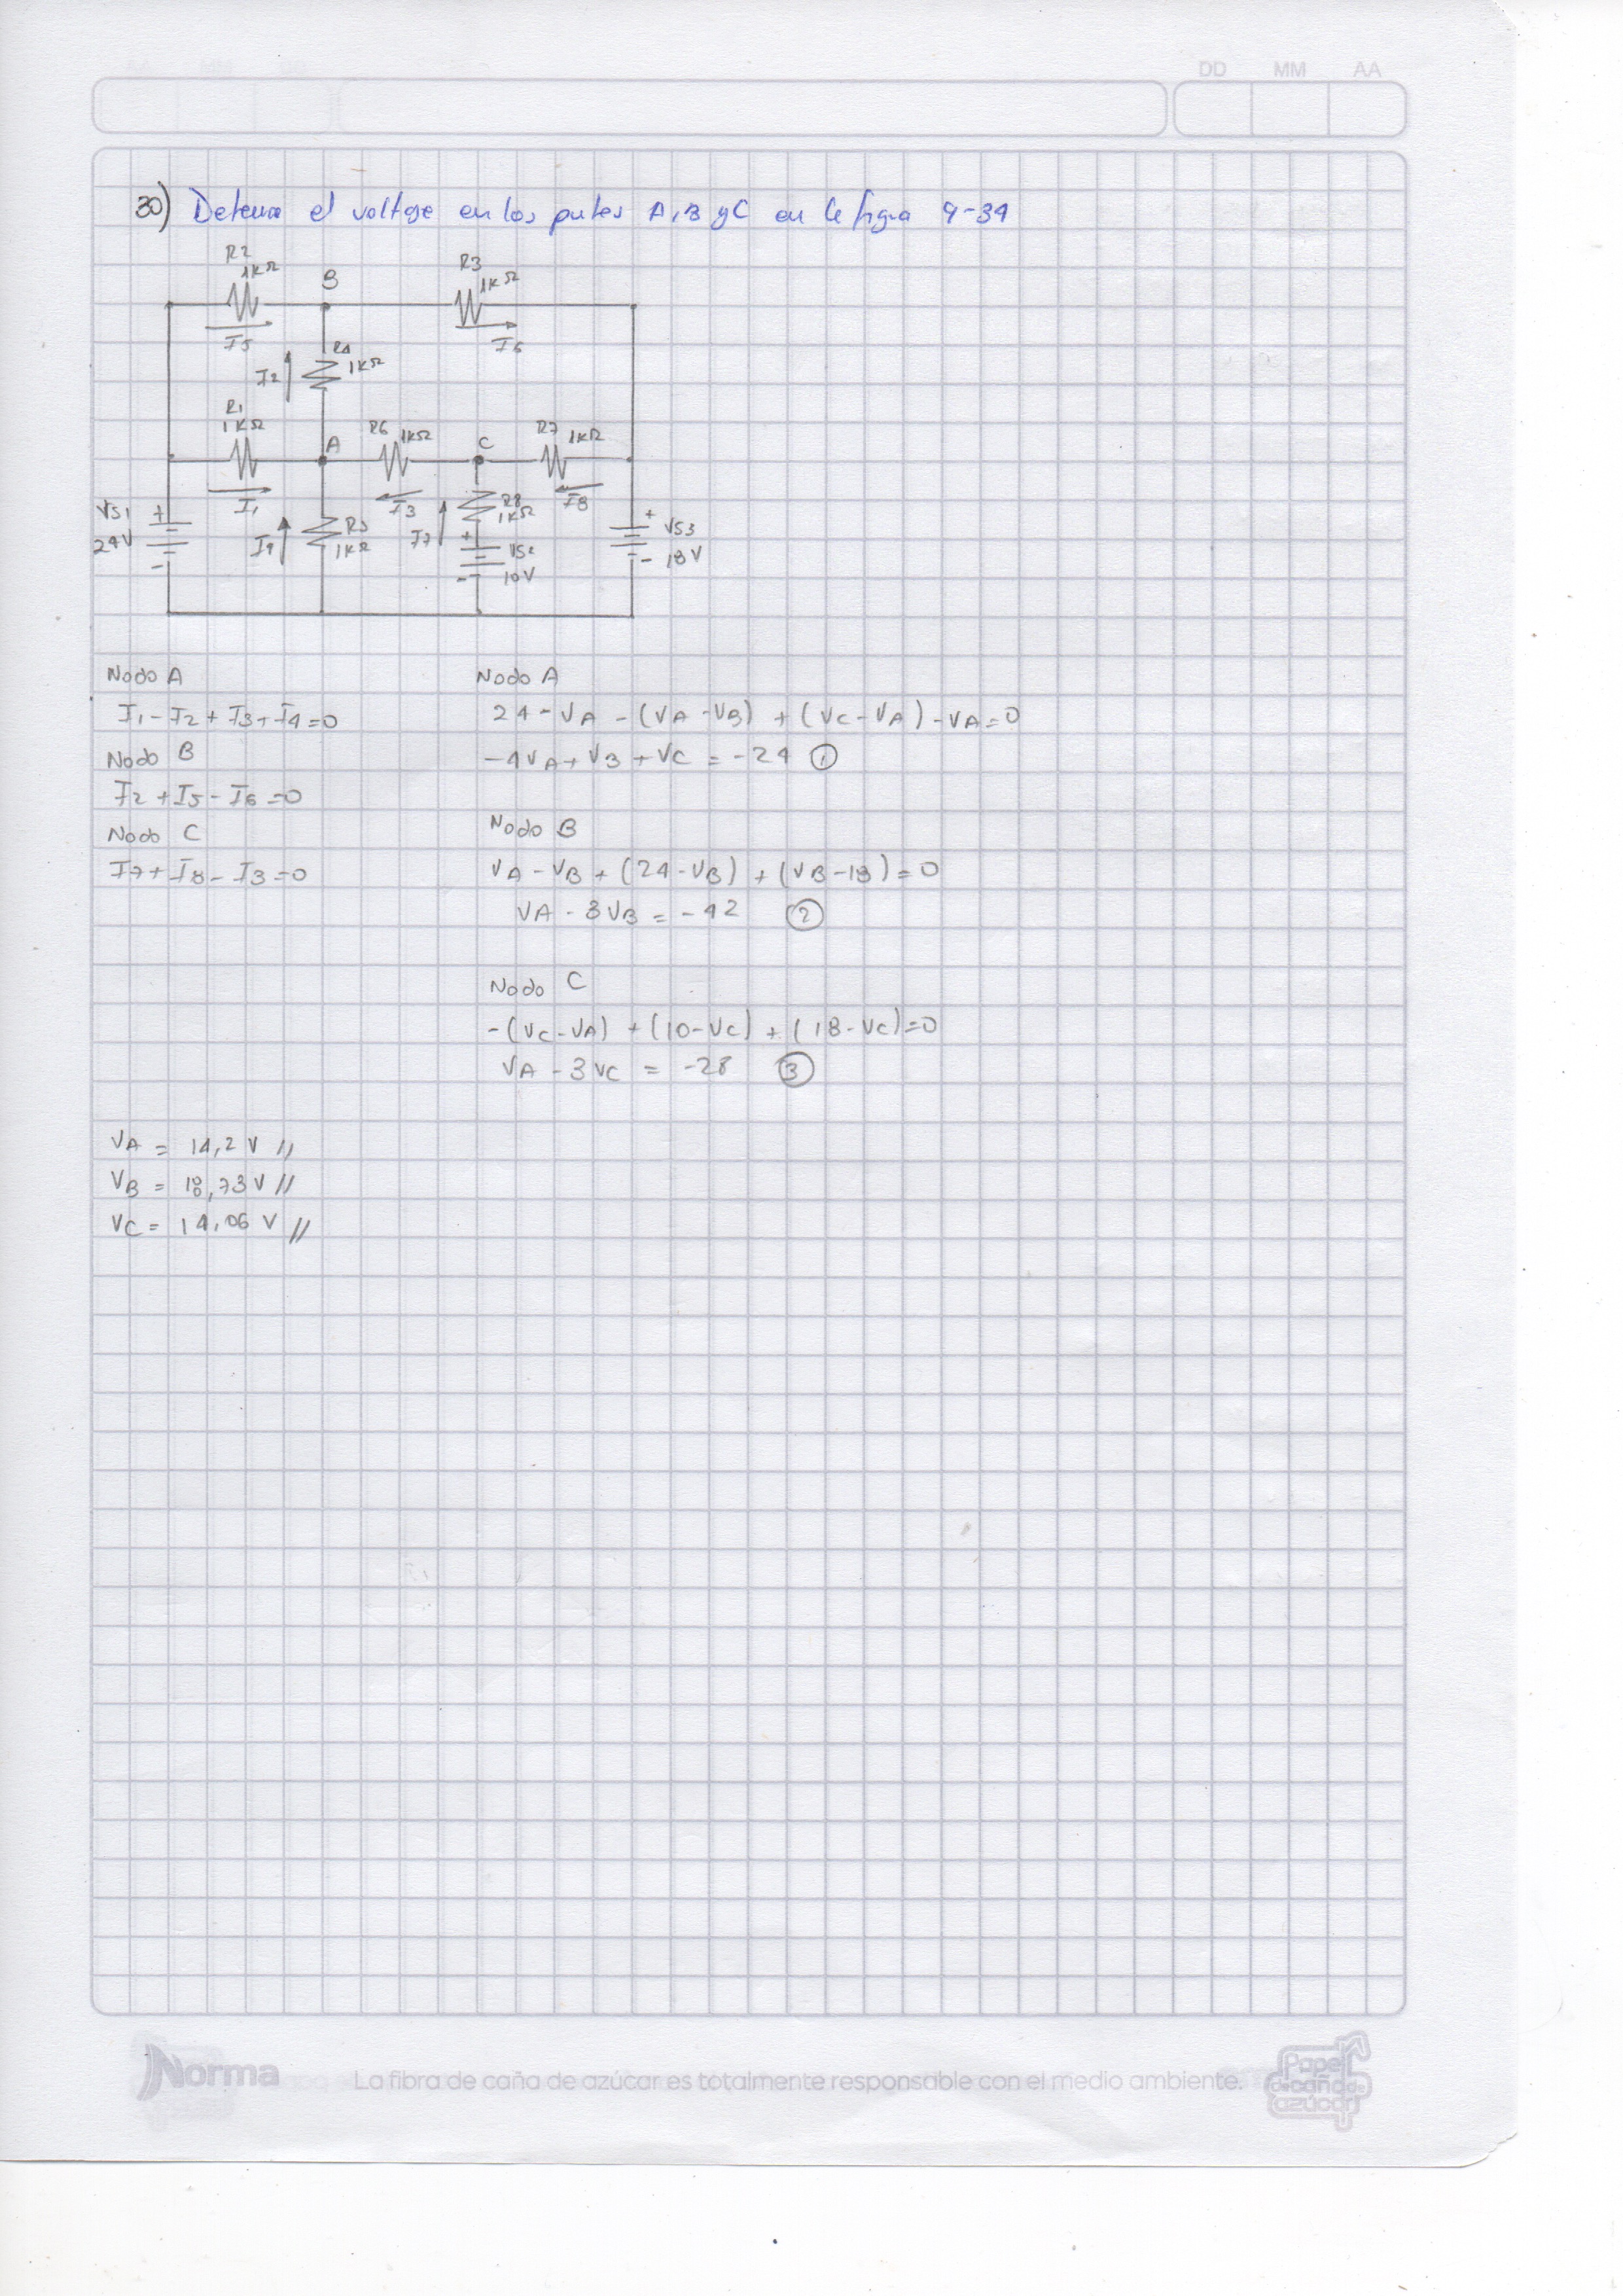 DD MM AA
30) Determe el voltaje en los putos A, B y C en la figra 9-34
R2
1KΩ
B
R3
1KΩ
I5
I6
R4
1KΩ
I2
R1
1KΩ
A
R6
1KΩ
C
R7
1KΩ
I1
I3
R8
1KΩ
I8
VS1
+
24V
-
I4
R5
1KΩ
I7
+
VS2
-
10V
+
VS3
-
18V
Nodo A
I1 - I2 + I3 + I4 = 0
Nodo B
I2 + I5 - I6 = 0
Nodo C
I7 + I8 - I3 = 0
Nodo A
24 - VA - (VA - VB) + (VC - VA) - VA = 0
-4VA + VB + VC = -24 ①
Nodo B
VA - VB + (24 - VB) + (VB - 18) = 0
VA - 3VB = -42 ②
Nodo C
-(VC - VA) + (10 - VC) + (18 - VC) = 0
VA - 3VC = -28 ③
VA = 14,2 V //
VB = 18,73 V //
VC = 14,06 V //
Norma
La fibra de caña de azúcar es totalmente responsable con el medio ambiente.
Papel
de caña de
azúcar